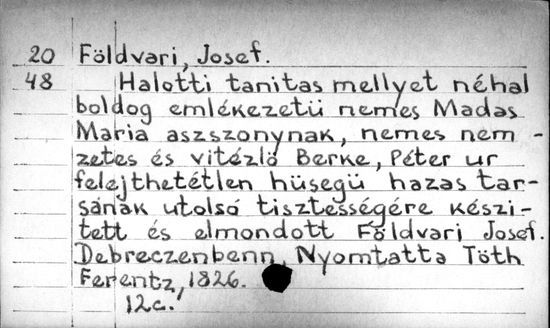 20 Földvari, Josef.
48 Halotti tanitas mellyet néhal
boldog emlékezetü nemes Madas
Maria aszszonynak, nemes nem -
zetes és vitézlö Berke, Péter ur
felejthetétlen hüsegü hazas tar-
sának utolsó tisztességére készi-
tett és elmondott Földvari Josef.
Debreczenbenn, Nyomtatta Tóth
Ferentz, 1826.
12c.